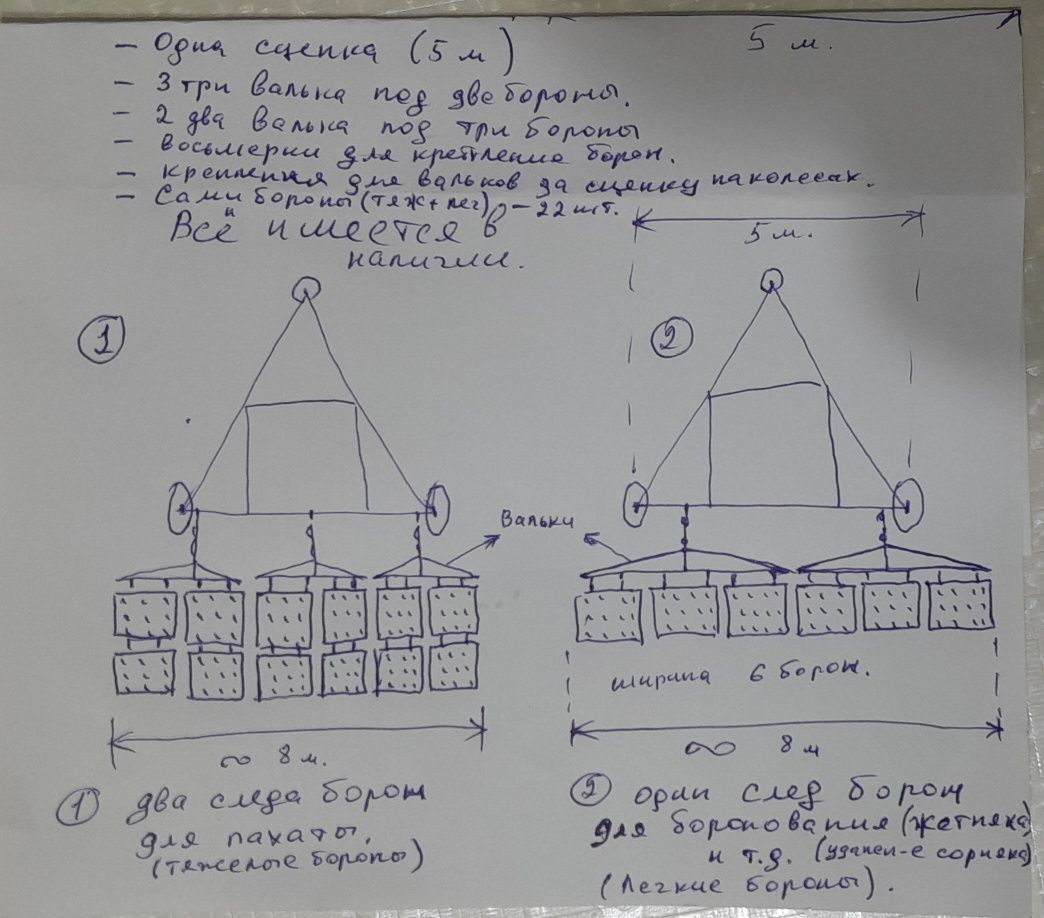 5 м.
— Одна сцепка (5 м)
— 3 три валька под две бороны.
— 2 два валька под три бороны
— восьмерки для крепление борон.
— крепления для вальков за сцепку на колесах.
— Сами бороны (тяж + лег) — 22 шт.
Всё имеется в
наличии.
5 м.
1
2
Вальки
ширина 6 борон.
∾ 8 м.
∾ 8 м
1 два следа борон
для пахаты.
(тяжелые бороны)
2 один след борон
для боронования (житняка)
и т.д. (удален-е сорняка)
(Легкие бороны).